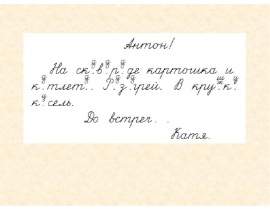 Антон!
На ск?в?р?де картошка и
к?тлет?. Р?з?грей. В кру?к?
к?сель.
До встреч. .
Катя.